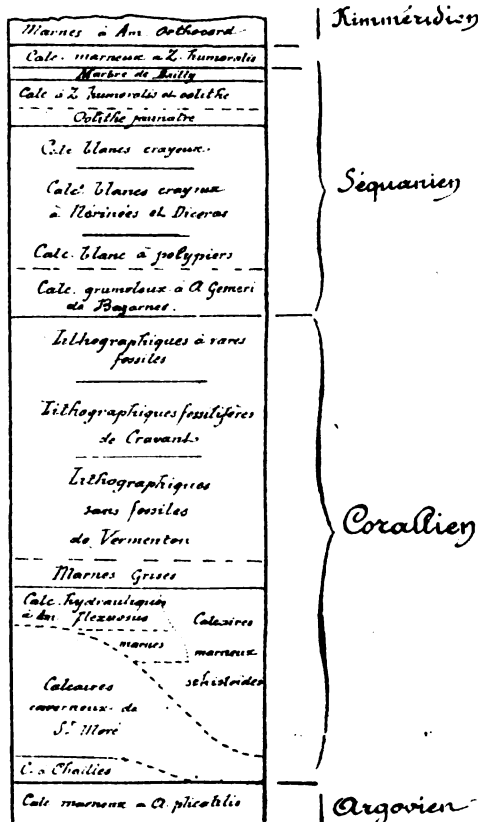 Marnes à Am. Orthocera
Kimméridien
Calc. marneux à Z. humeralis
Marbre de Bailly
Calc à Z humeralis et oolithe
Oolithe jaunatre
Calc blancs crayeux.
Calcs blancs crayeux
à Nérinées et Diceras
Séquanien
Calc. blanc à polypiers
Calc. grumeleux à A Gemeri
de Bazarnes.
Lithographiques à rares
fossiles
Lithographiques fossilifères
de Cravant
Lithographiques
sans fossiles
de Vermenton
Corallien
Marnes Grises
Calc. hydrauliques
à Am. flexuosus
marnes
Calcaires
marneux
schistoïdes
Calcaires
caverneux de
St. Moré
C. à Chailles
Calc marneux à A. plicatilis
Argovien